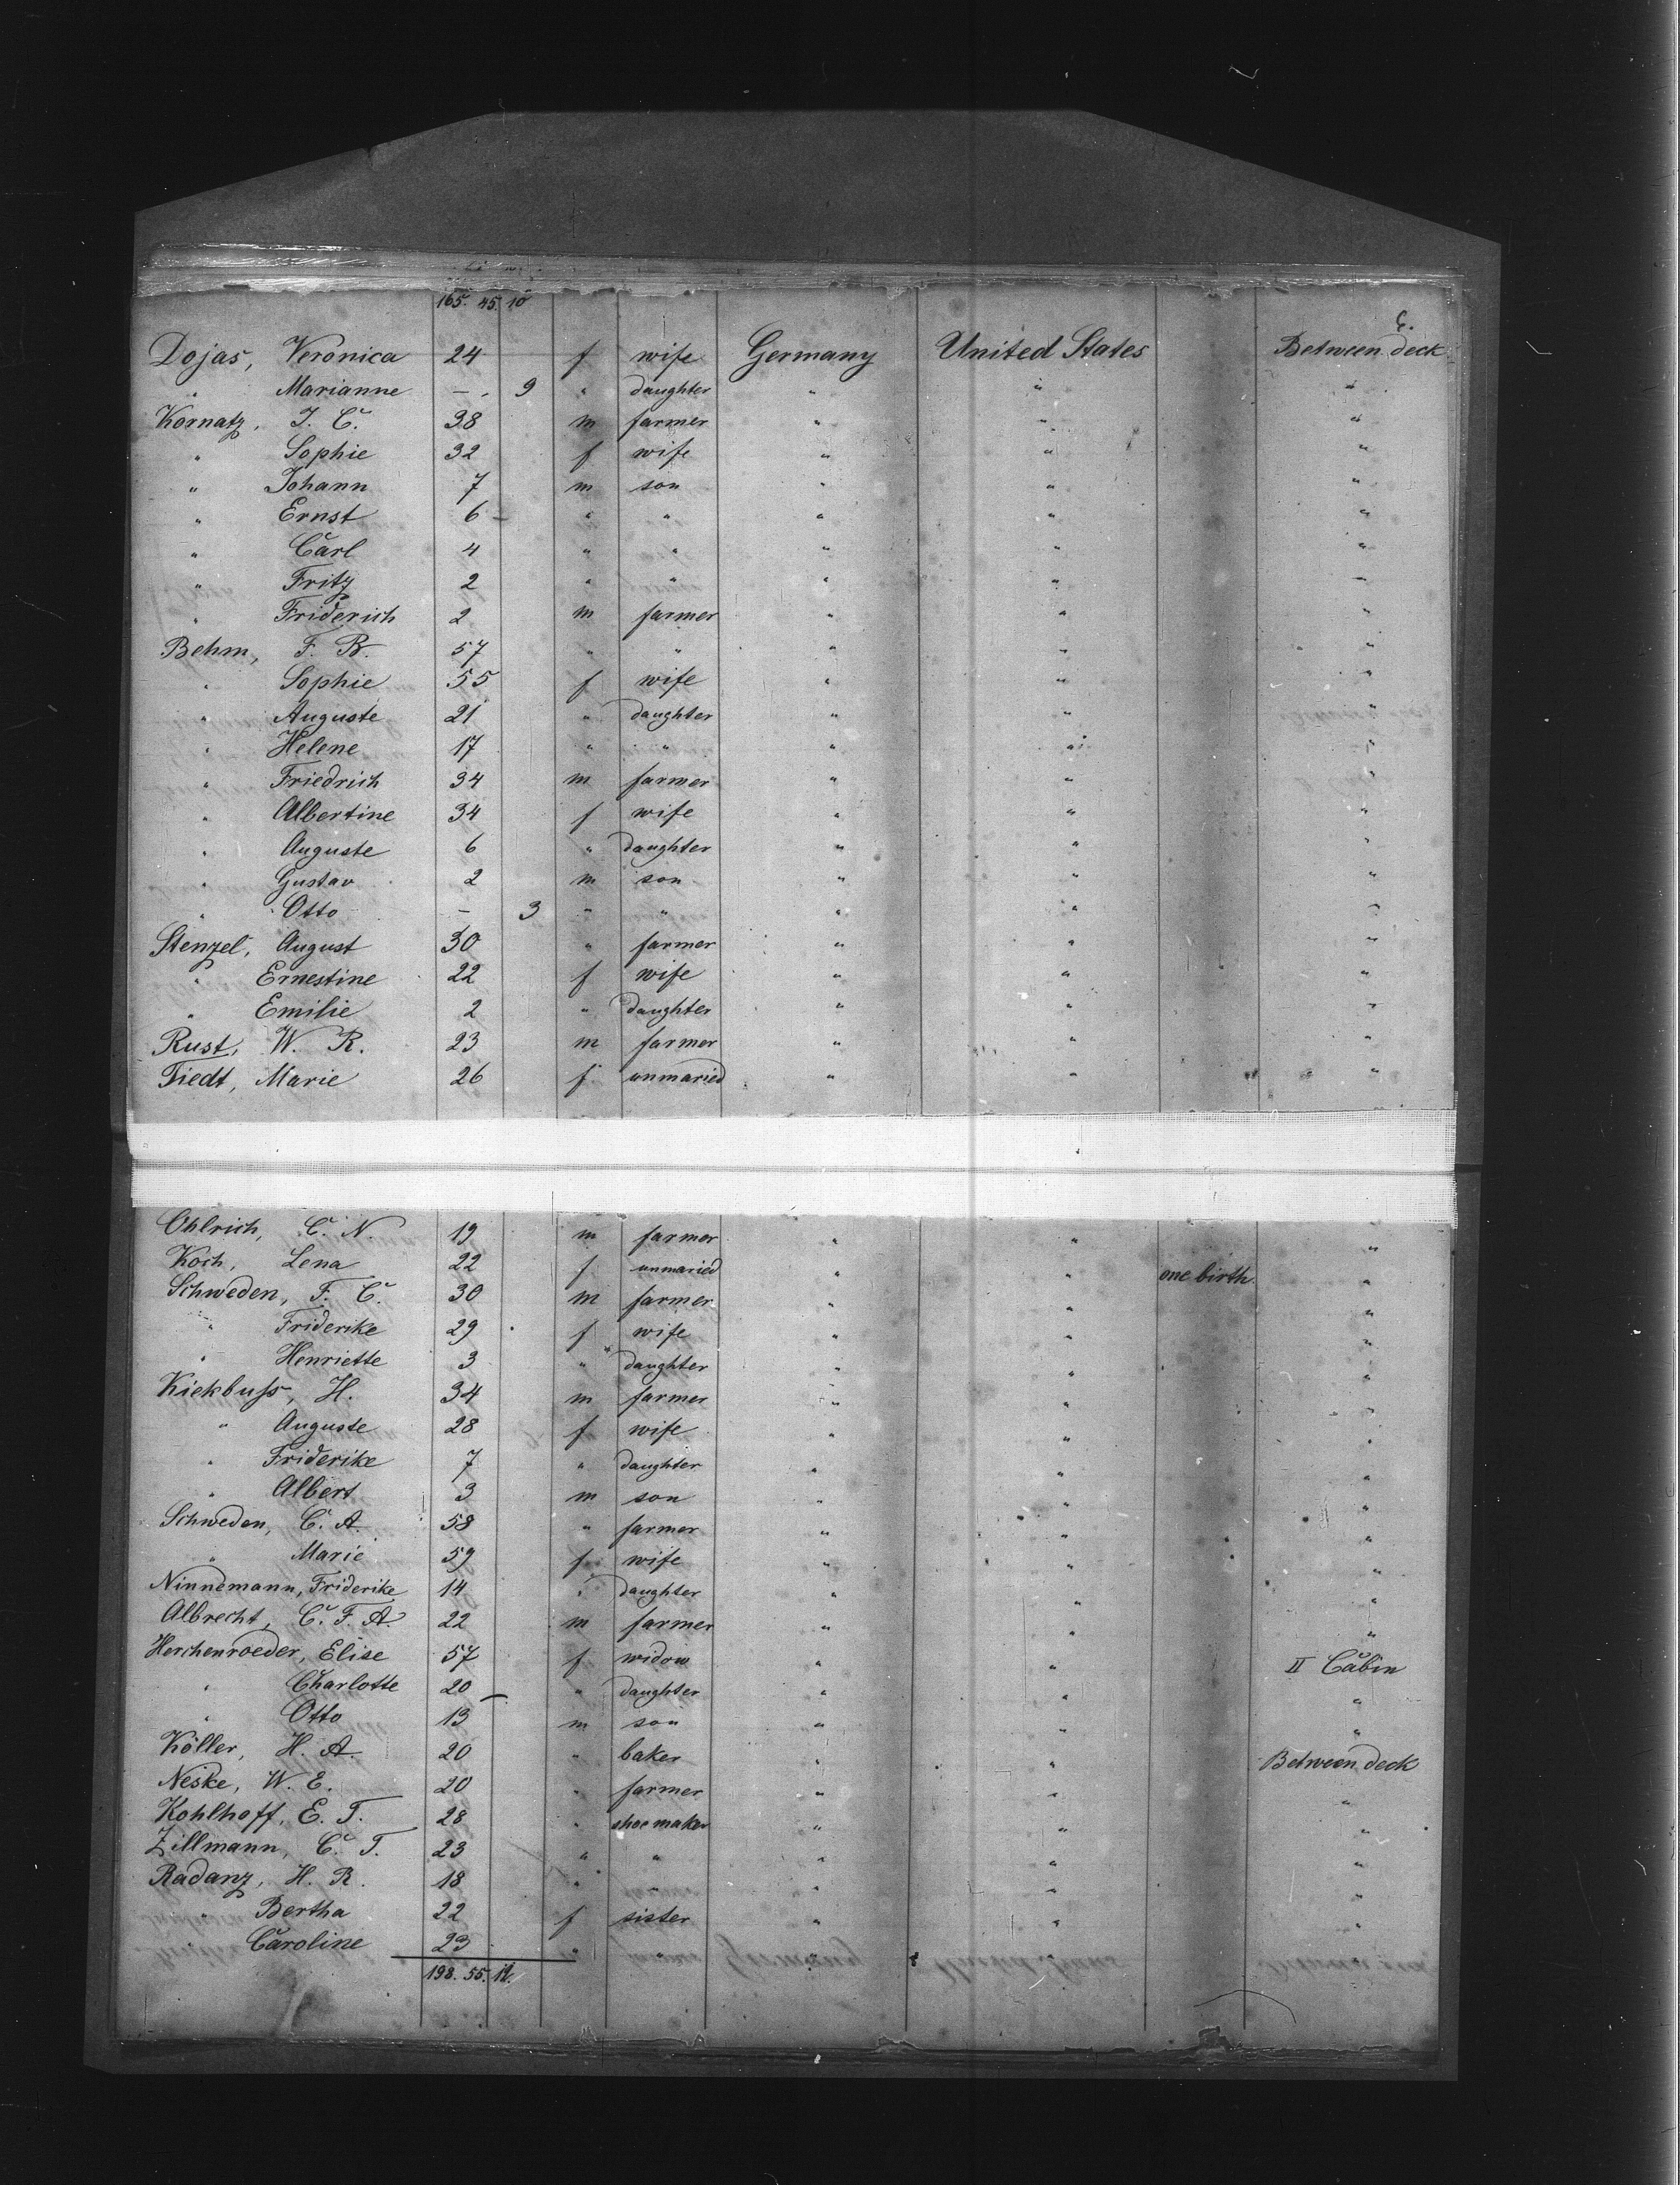 165. 45. 10
6.
Dojas, Veronica 24 f wife Germany United States Between deck
" Marianne — . 9 " daughter " " "
Kornatz, J. C. 38 m farmer " " "
" Sophie 32 f wife " " "
" Johann 7 m son " " "
" Ernst 6 – " " " " "
" Carl 4 " " " " "
" Fritz 2 " " " " "
" Friderich 2 m farmer " " "
Behm, F. B. 57 " " " " "
" Sophie 55 f wife " " "
" Auguste 21 " daughter " " "
" Helene 17 " " " " "
" Friedrich 34 m farmer " " "
" Albertine 34 f wife " " "
" Auguste 6 " daughter " " "
" Gustav 2 m son " " "
" Otto – 3 " " " " "
Stenzel, August 30 " farmer " " "
" Ernestine 22 f wife " " "
" Emilie 2 " daughter " " "
Rust, W. R. 23 m farmer " " "
Tiedt, Marie 26 f unmaried " " "
Ohlrich, C. N. 19 m farmer " " "
Koch, Lena 22 f unmaried " " one birth "
Schweden, F. C. 30 m farmer " " "
" Friderike 29 f wife " " "
" Henriette 3 " daughter " " "
Kiekbuſs, H. 34 m farmer " " "
" Auguste 28 f wife " " "
" Friderike 7 " daughter " " "
" Albert 3 m son " " "
Schweden, C. A. 58 " farmer " " "
" Marie 59 f wife " " "
Ninnemann, Friderike 14 " daughter " " "
Albrecht, C. F. A. 22 m farmer " " "
Herchenroeder, Elise 57 f widow " " II Cabin
" Charlotte 20 – " daughter " " "
" Otto 13 m son " " "
Köller, H. A. 20 " baker " " Between deck
Neske, W. E. 20 " farmer " " "
Kohlhoff, E. T. 28 " shoe maker " " "
Zillmann, C. T. 23 " " " " "
Radanz, H. R. 18 " " " " "
" Bertha 22 f sister " " "
" Caroline 23 " " " "
198. 55. 12.